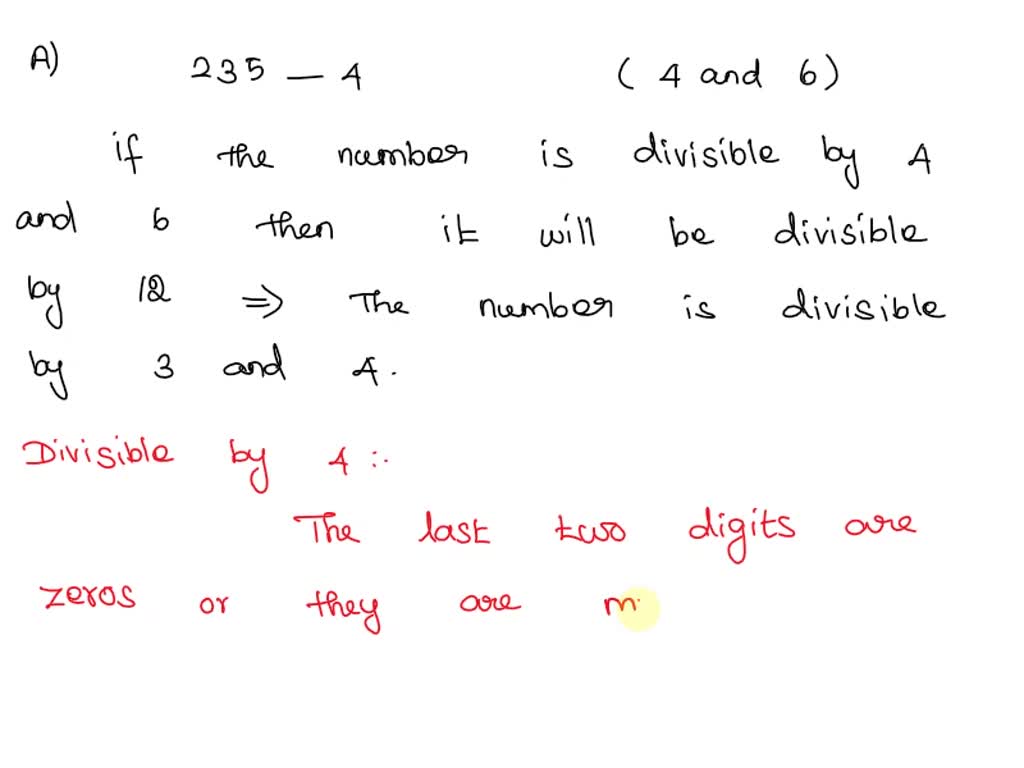 A) 235 — 4 ( 4 and 6 )
if the number is divisible by 4
and 6 then it will be divisible
by 12 ⇒ The number is divisible
by 3 and 4.
Divisible by 4 :-
The last two digits are
zeros or they are m